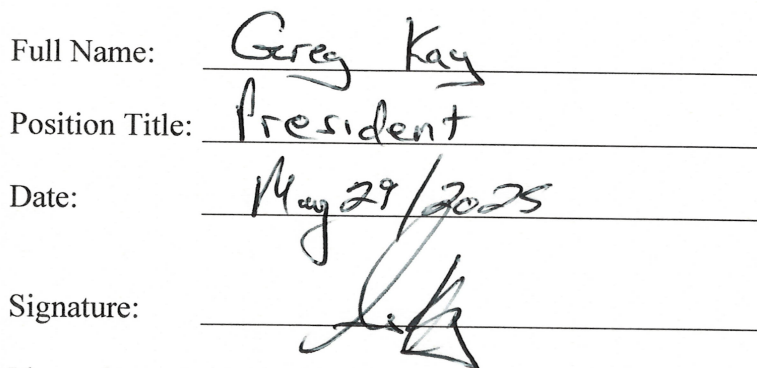 Full Name: Greg Kay
Position Title: President
Date: May 29/2025
Signature: